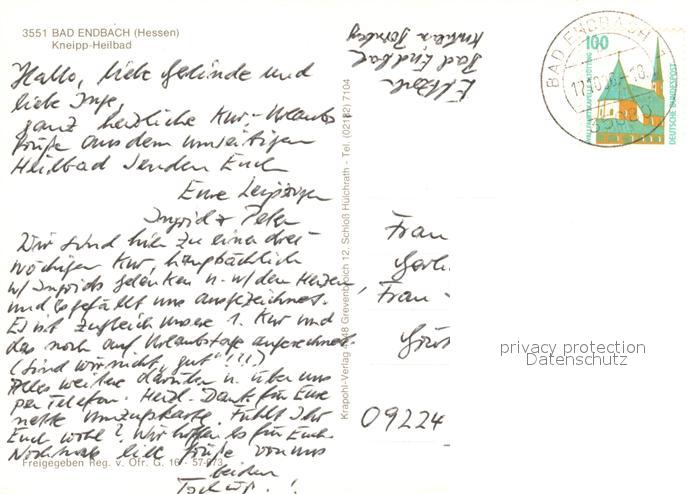 3551 BAD ENDBACH (Hessen)
Kneipp-Heilbad
Hallo, liebe Gerlinde und
liebe Inge,
ganz herzliche Kur-Urlaubs
grüße aus dem umseitigen
Heilbad senden Euch
Eure Leipziger
Ingrid & Peter
Wir sind hier zu einer drei
wöchigen Kur, hauptsächlich
w/ Ingrids Gelenken u. w/ dem Herzen,
und es gefällt uns ausgezeichnet.
Es ist zugleich unsere 1. Kur und
das noch auf Urlaubstage angerechnet.
(Sind wir nicht „gut"!!!)
Alles weitere darüber u. über uns
per Telefon. Herzl. Dank für Eure
nette Umzugskarte. Fühlt Ihr
Euch wohl? Wir hoffen es für Euch.
Nochmals liebe Grüße von uns
beiden
Tschüß!
Freigegeben Reg. v. Ofr. G. 16 - 57-873
Krapohl-Verlag 4048 Grevenbroich 12, Schloß Hülchrath - Tel. (02182) 7104
Bad Endbach
BAD ENDBACH
100
DEUTSCHE BUNDESPOST
Frau
Gerli
Frau
09224
privacy protection
Datenschutz